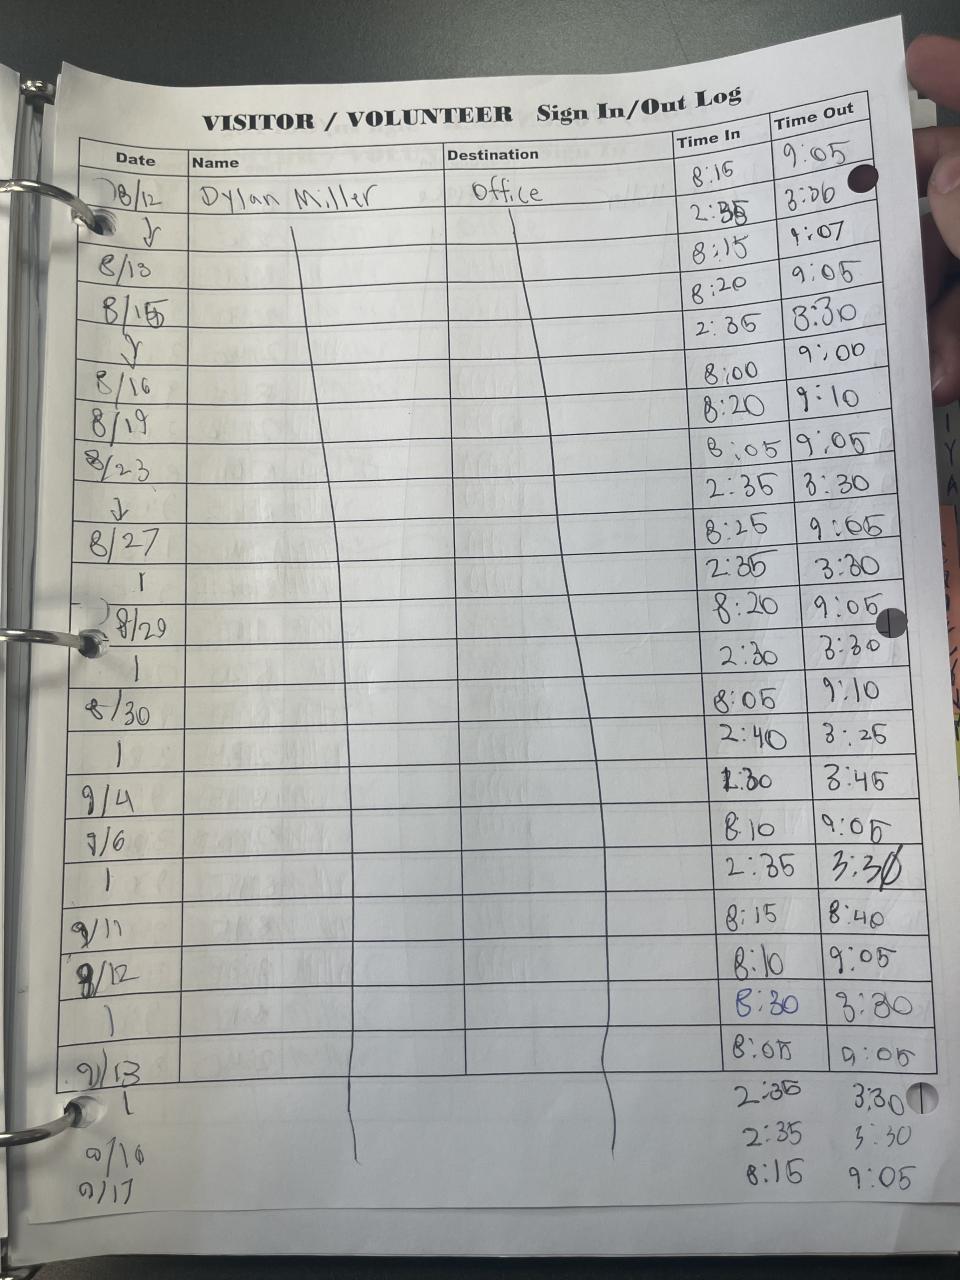 VISITOR / VOLUNTEER Sign In/Out Log
Date Name Destination Time In Time Out
8/12 Dylan Miller Office 8:15 9:05
2:35 3:30
8/13 8:15 9:07
8/15 8:20 9:05
2:35 3:30
8/16 8:00 9:00
8/19 8:20 9:10
8/23 8:05 9:05
2:35 3:30
8/27 8:25 9:05
2:35 3:30
8/29 8:20 9:05
2:30 3:30
8/30 8:05 9:10
2:40 3:25
9/4 1:30 3:45
9/6 8:10 9:05
2:35 3:30
9/11 8:15 8:40
9/12 8:10 9:05
8:30 3:30
9/13 8:05 9:05
2:35 3:30
9/16 2:35 3:30
9/17 8:15 9:05
I
Y
A